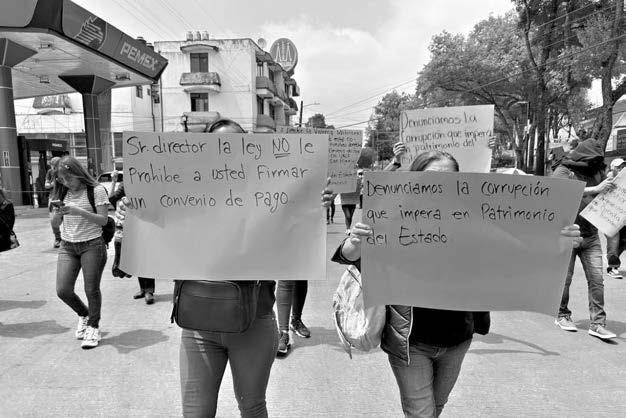 PEMEX
Sr. director la ley NO le
Prohibe a usted Firmar
un convenio de pago.
Denunciamos la corrupción
que impera en Patrimonio
del Estado
Denunciamos la
corrupción que impera
en patrimonio del